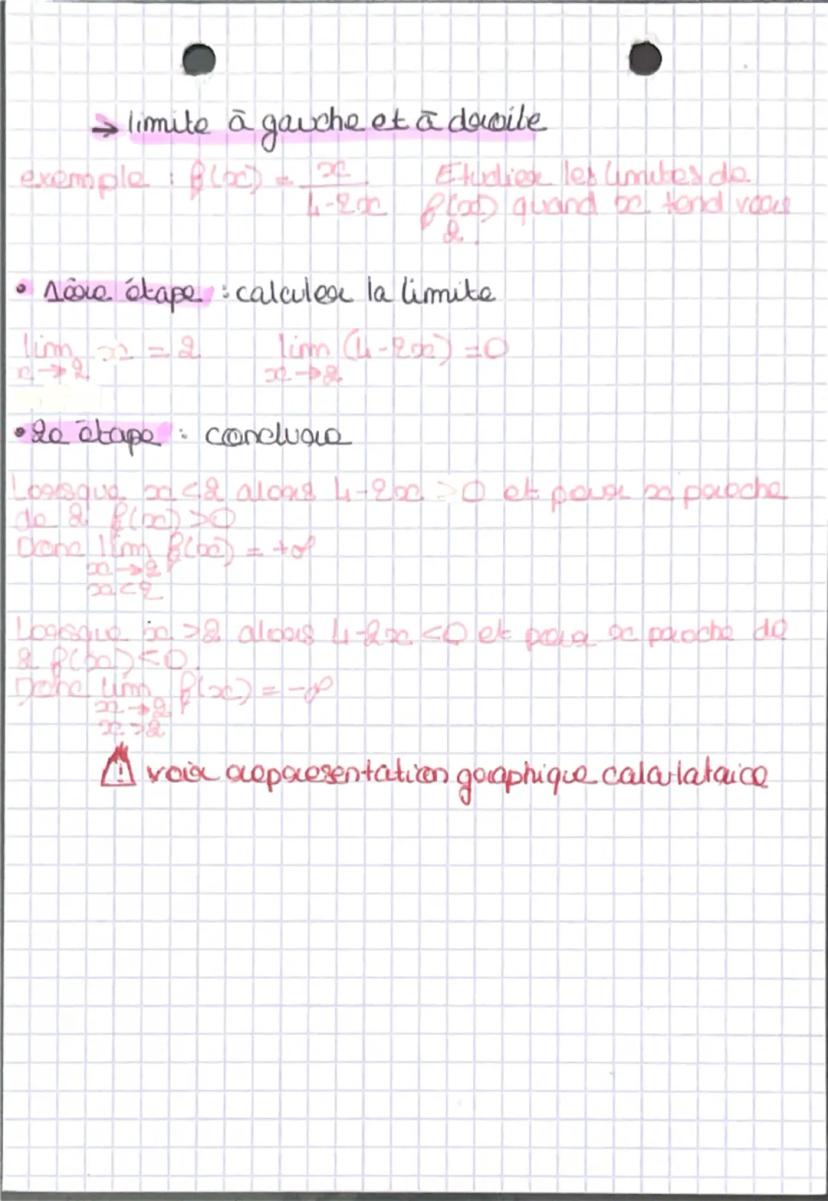 → limite à gauche et à droite
exemple : f(x) = x/(4-2x) Etudier les limites de
f(x) quand x tend vers
2.
• 1ère étape : calculer la limite
lim x = 2 lim (4-2x) = 0
x→2 x→2
• 2e étape : conclure
Lorsque x<2 alors 4-2x >0 et pour x proche
de 2 f(x) >0
Donc lim f(x) = +∞
x→2
x<2
Lorsque x >2 alors 4-2x <0 et pour x proche de
2 f(x) <0.
Donc lim f(x) = -∞
x→2
x>2
⚠ voir représentation graphique calculatrice